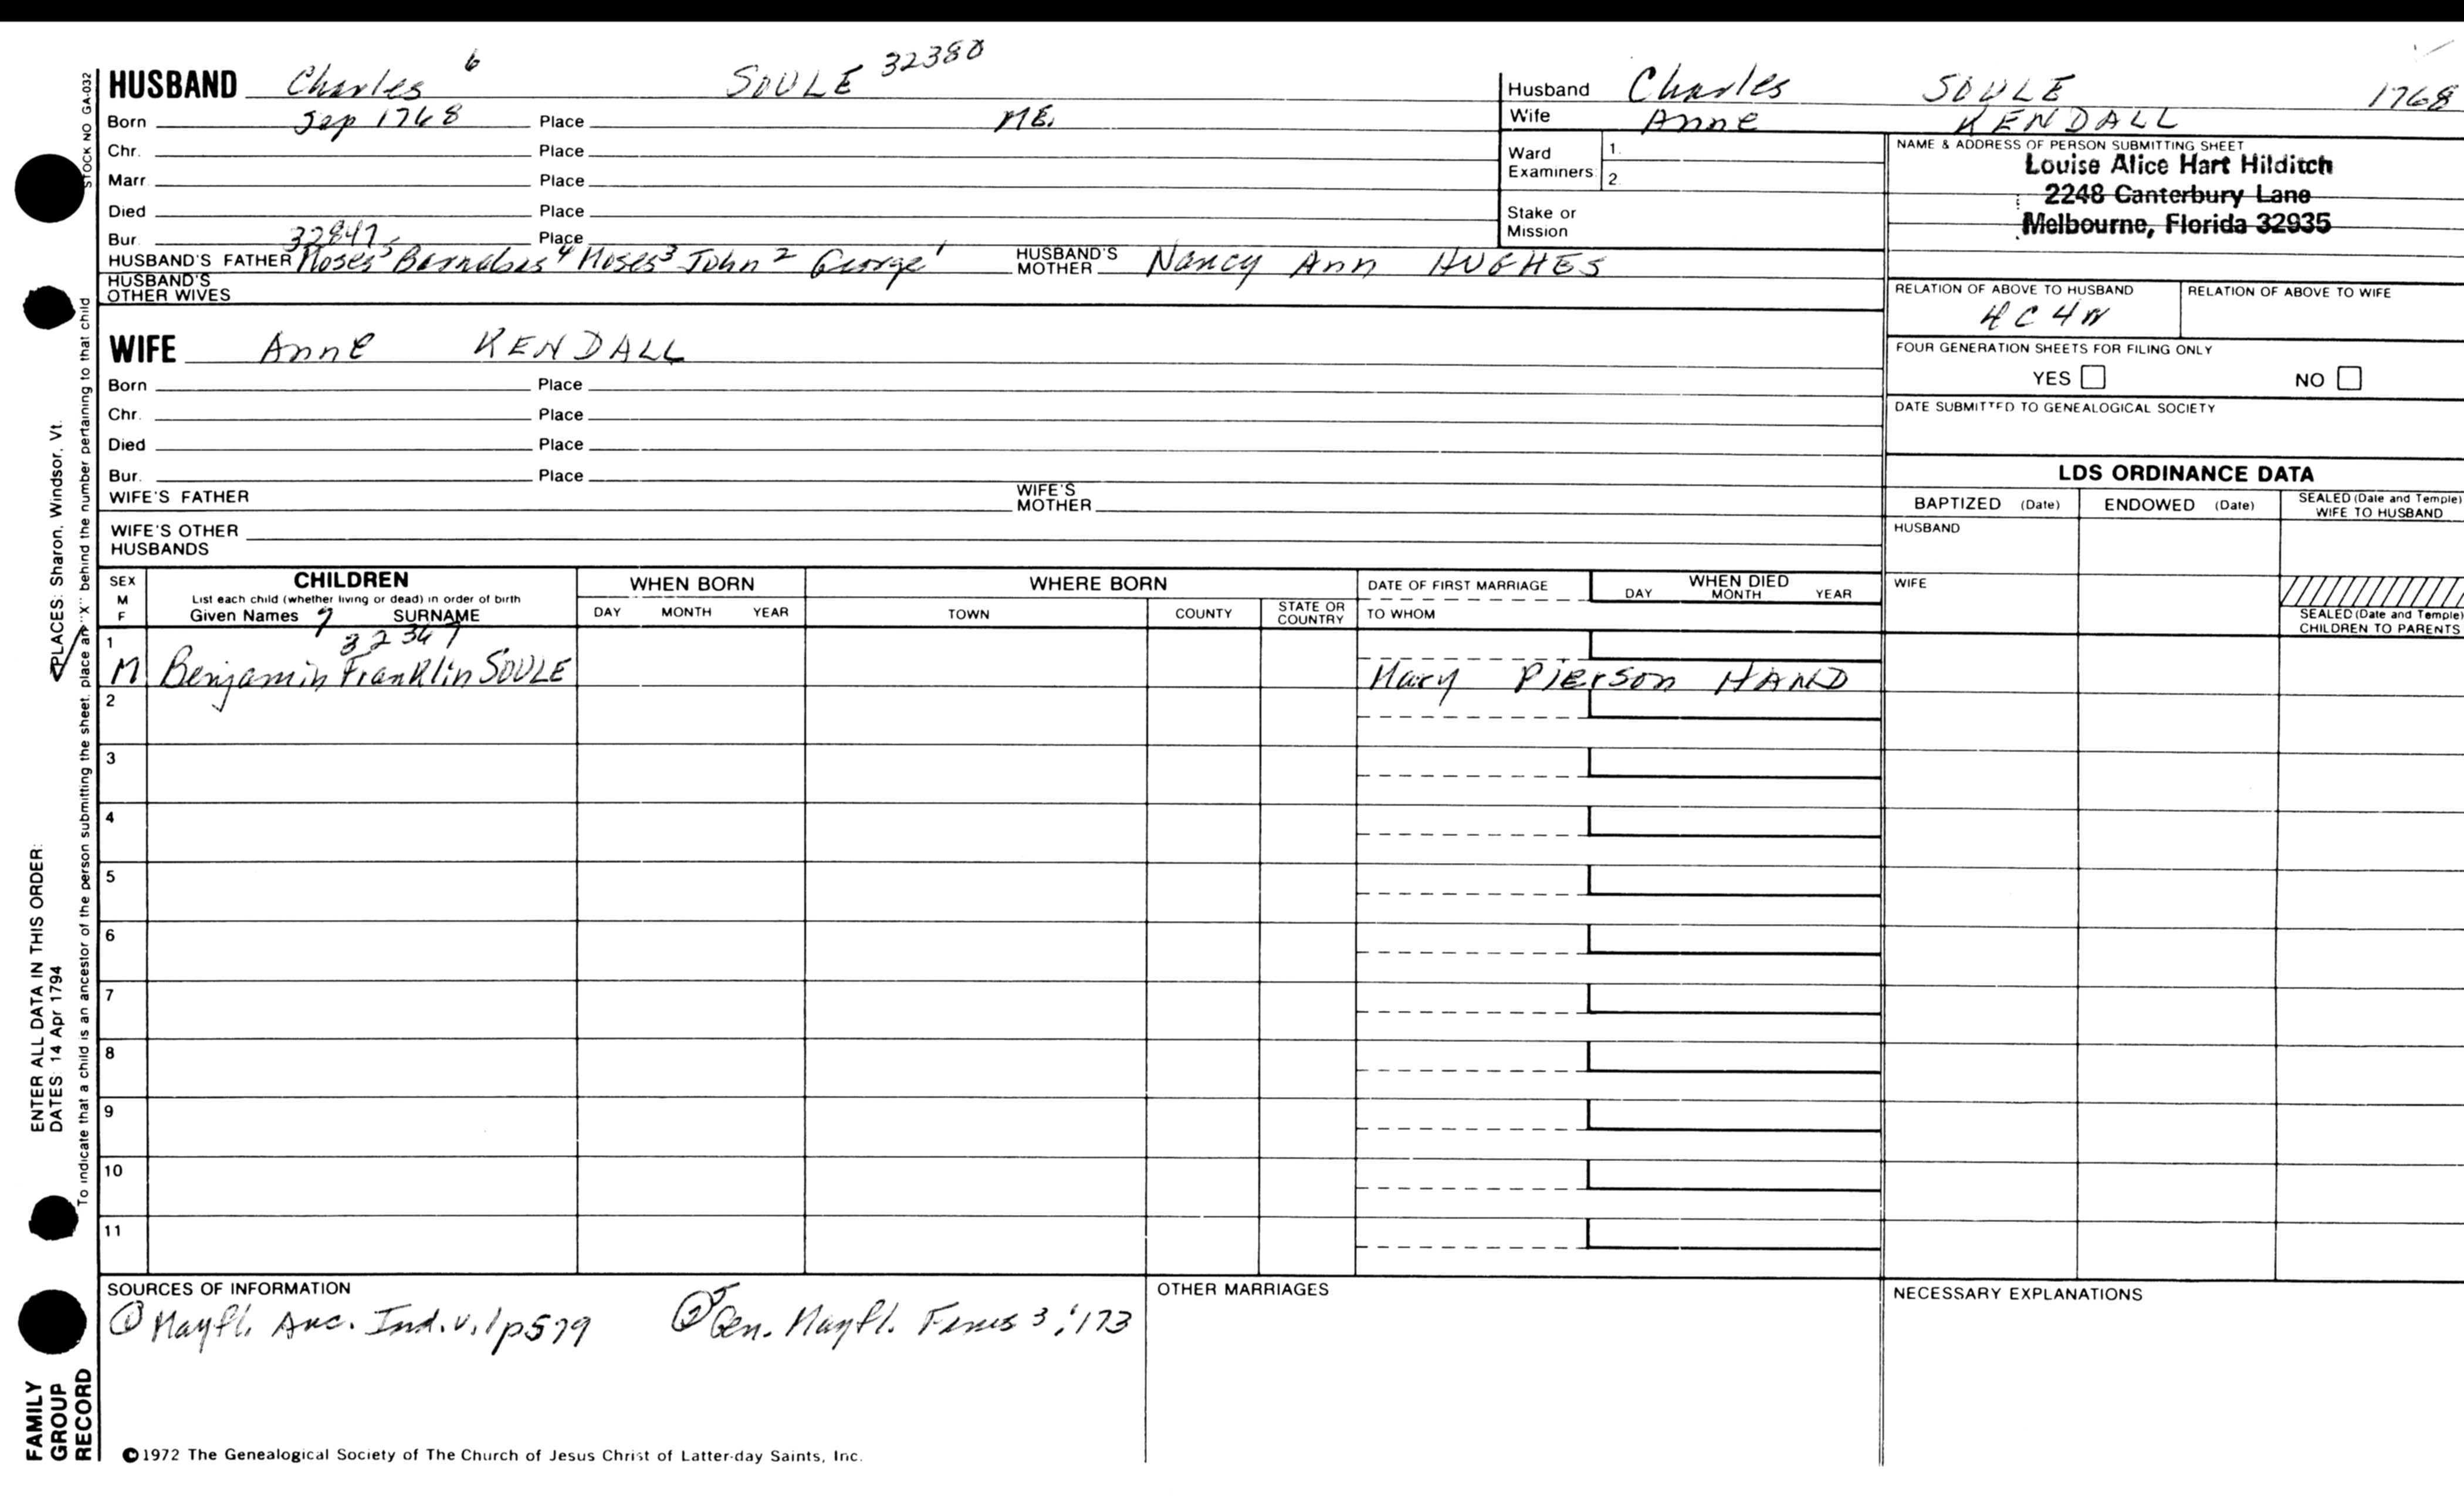 HUSBAND Charles 6 SOULE 32380
Born Sep 1768 Place ME.
Chr. Place
Marr Place
Died Place
Bur. 32847 Place
HUSBAND'S FATHER Moses5 Barnabas4 Moses3 John2 George1 HUSBAND'S MOTHER Nancy Ann HUGHES
HUSBAND'S OTHER WIVES
WIFE Anne KENDALL
Born Place
Chr. Place
Died Place
Bur. Place
WIFE'S FATHER WIFE'S MOTHER
WIFE'S OTHER HUSBANDS
Husband Charles SOULE 1768
Wife Anne KENDALL
Ward Examiners 1. 2.
Stake or Mission
NAME & ADDRESS OF PERSON SUBMITTING SHEET
Louise Alice Hart Hilditch
2248 Canterbury Lane
Melbourne, Florida 32935
RELATION OF ABOVE TO HUSBAND RELATION OF ABOVE TO WIFE
4C4R
FOUR GENERATION SHEETS FOR FILING ONLY
YES NO
DATE SUBMITTED TO GENEALOGICAL SOCIETY
LDS ORDINANCE DATA
BAPTIZED (Date) ENDOWED (Date) SEALED (Date and Temple) WIFE TO HUSBAND
HUSBAND
WIFE
SEALED (Date and Temple) CHILDREN TO PARENTS
SEX M F
CHILDREN
List each child (whether living or dead) in order of birth
Given Names 7 SURNAME
WHEN BORN
DAY MONTH YEAR
WHERE BORN
TOWN COUNTY STATE OR COUNTRY
DATE OF FIRST MARRIAGE
TO WHOM
WHEN DIED
DAY MONTH YEAR
1 32347
M Benjamin Franklin SOULE Mary Pierson HAND
2
3
4
5
6
7
8
9
10
11
SOURCES OF INFORMATION
① Mayfl. Anc. Ind. v.1 p579 ② Gen. Mayfl. Fams 3:173
OTHER MARRIAGES
NECESSARY EXPLANATIONS
©1972 The Genealogical Society of The Church of Jesus Christ of Latter-day Saints, Inc.
STOCK NO GA-032
To indicate that a child is an ancestor of the person submitting the sheet, place an "X" behind the number pertaining to that child
ENTER ALL DATA IN THIS ORDER:
DATES 14 Apr 1794 PLACES: Sharon, Windsor, Vt.
FAMILY
GROUP
RECORD